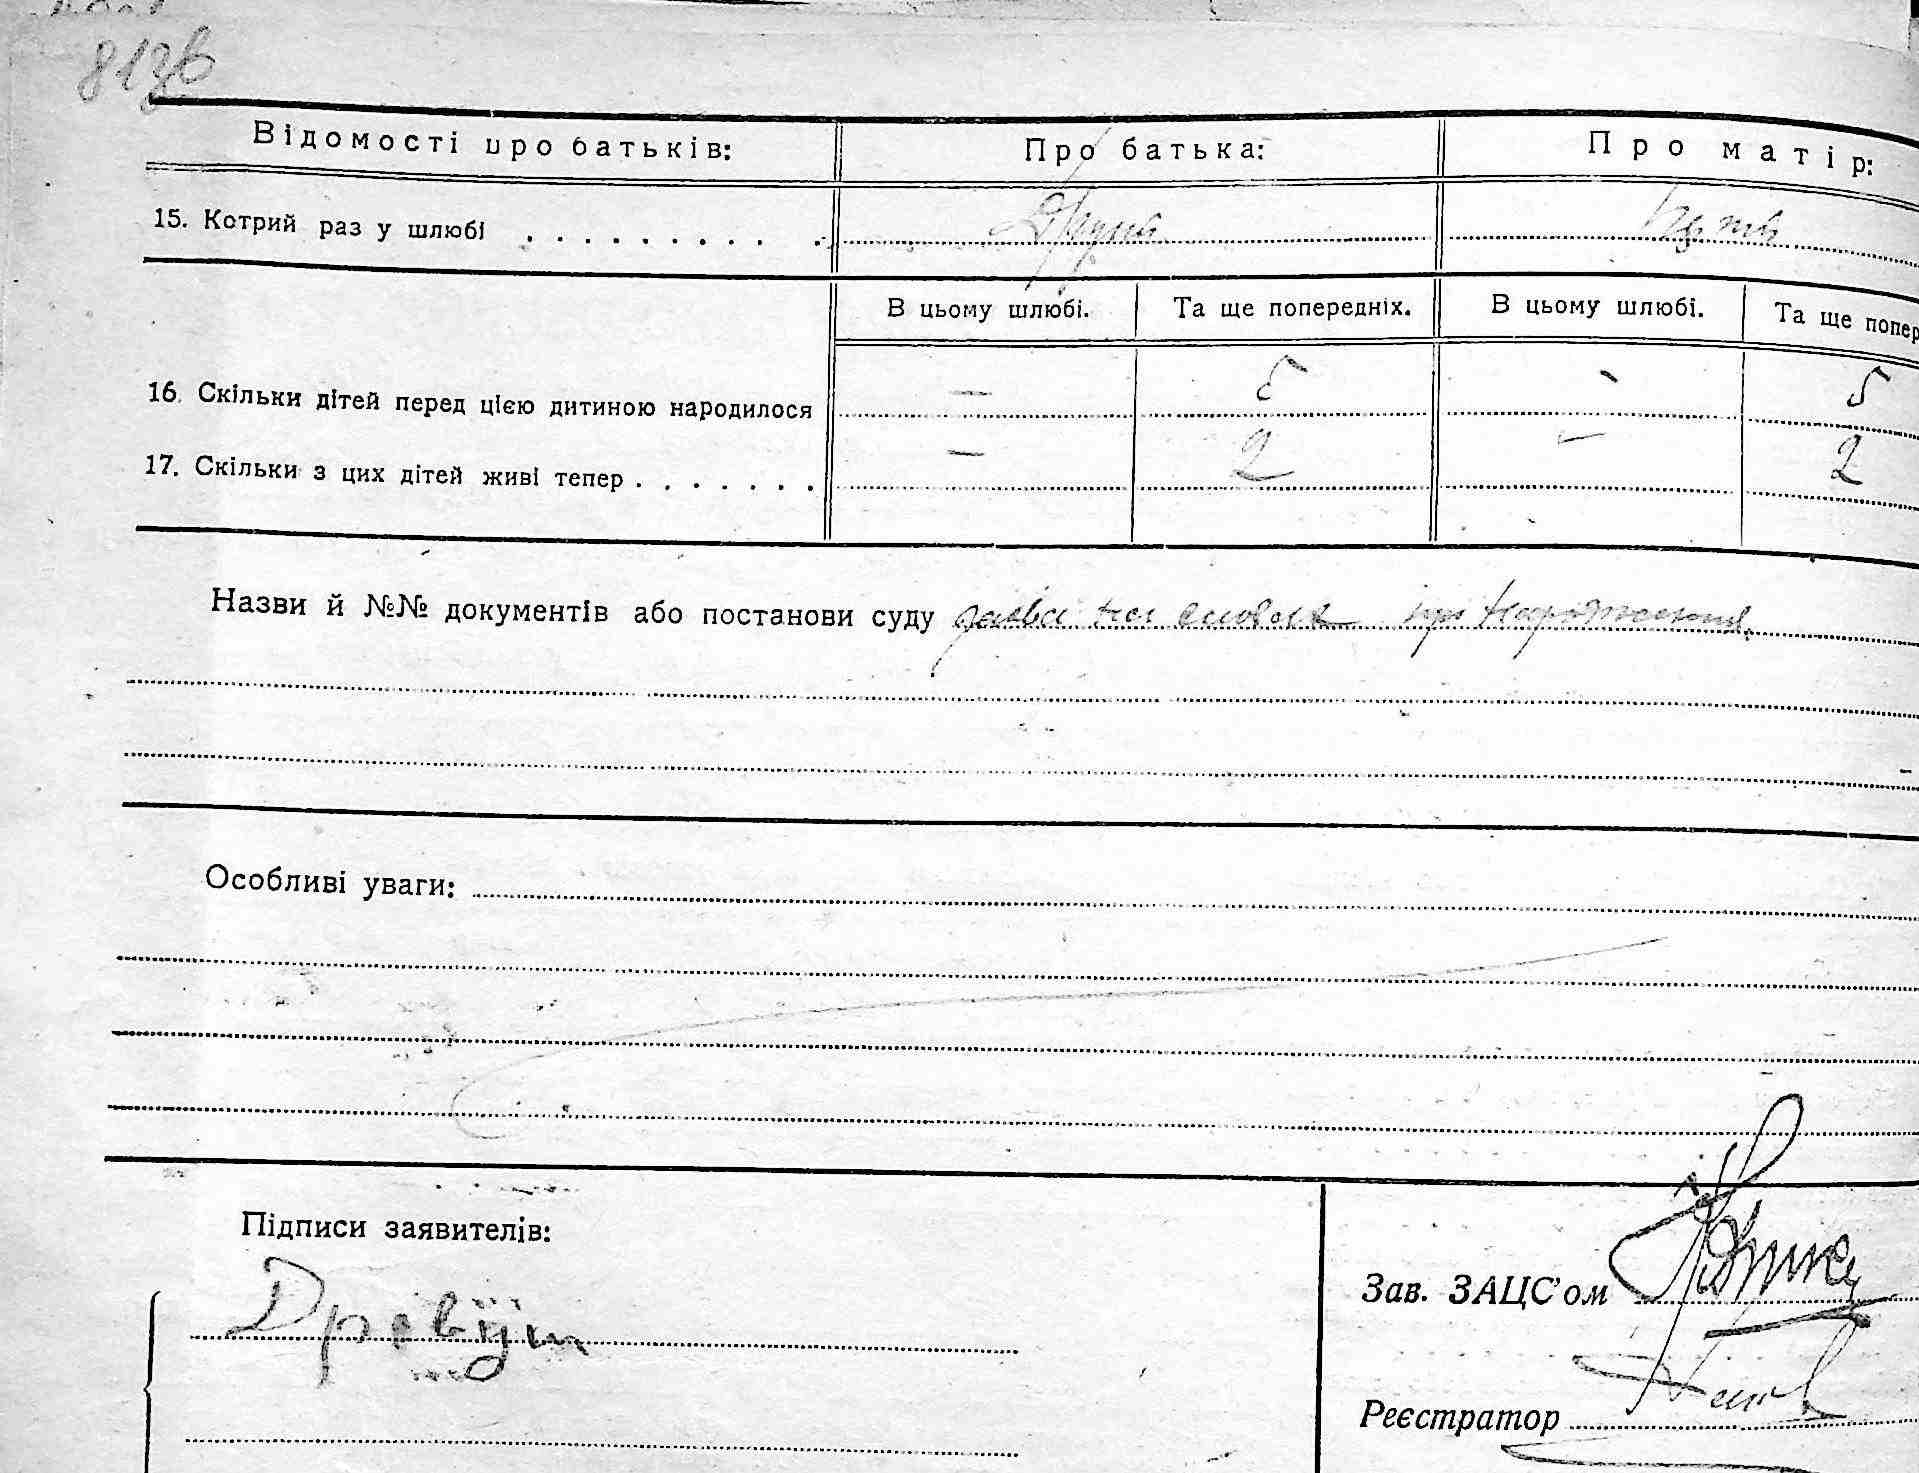 813б
Відомості про батьків: Про батька: Про матір:
15. Котрий раз у шлюбі . . . . . . . . . . Другий
В цьому шлюбі. Та ще попередніх. В цьому шлюбі. Та ще попер
16. Скільки дітей перед цією дитиною народилося — 5 - 5
17. Скільки з цих дітей живі тепер . . . . . . . — 2 — 2
Назви й №№ документів або постанови суду заява на словах про народження.
Особливі уваги:
Підписи заявителів:
Зав. ЗАЦС'ом
Реєстратор